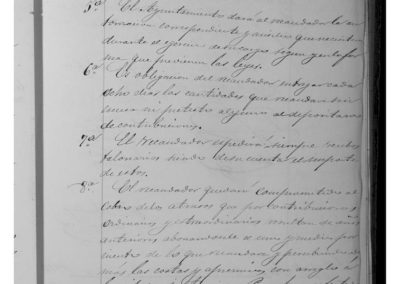 5ª El Ayuntamiento dará al recaudador la au-
torización correspondiente y auxilios que necesitara
durante el ejercicio de su cargo segun y en la for-
ma que previenen las leyes.
6ª Es obligacion del recaudador entregar cada
ocho dias las cantidades que recaudan sin
escusa ni pretesto alguno al depositario
de contribuciones.
7ª El recaudador espedirá siempre recibos
talonarios siendo de su cuenta el importe
de estos.
8ª El recaudador quedará comprometido al
cobro de los atrasos que por contribuciones
ordinarias y extraordinarias resultan de años
anteriores abonandosele el uno y medio por
ciento de lo que recaudare y percibiendo
más las costas y apremios con arreglo á